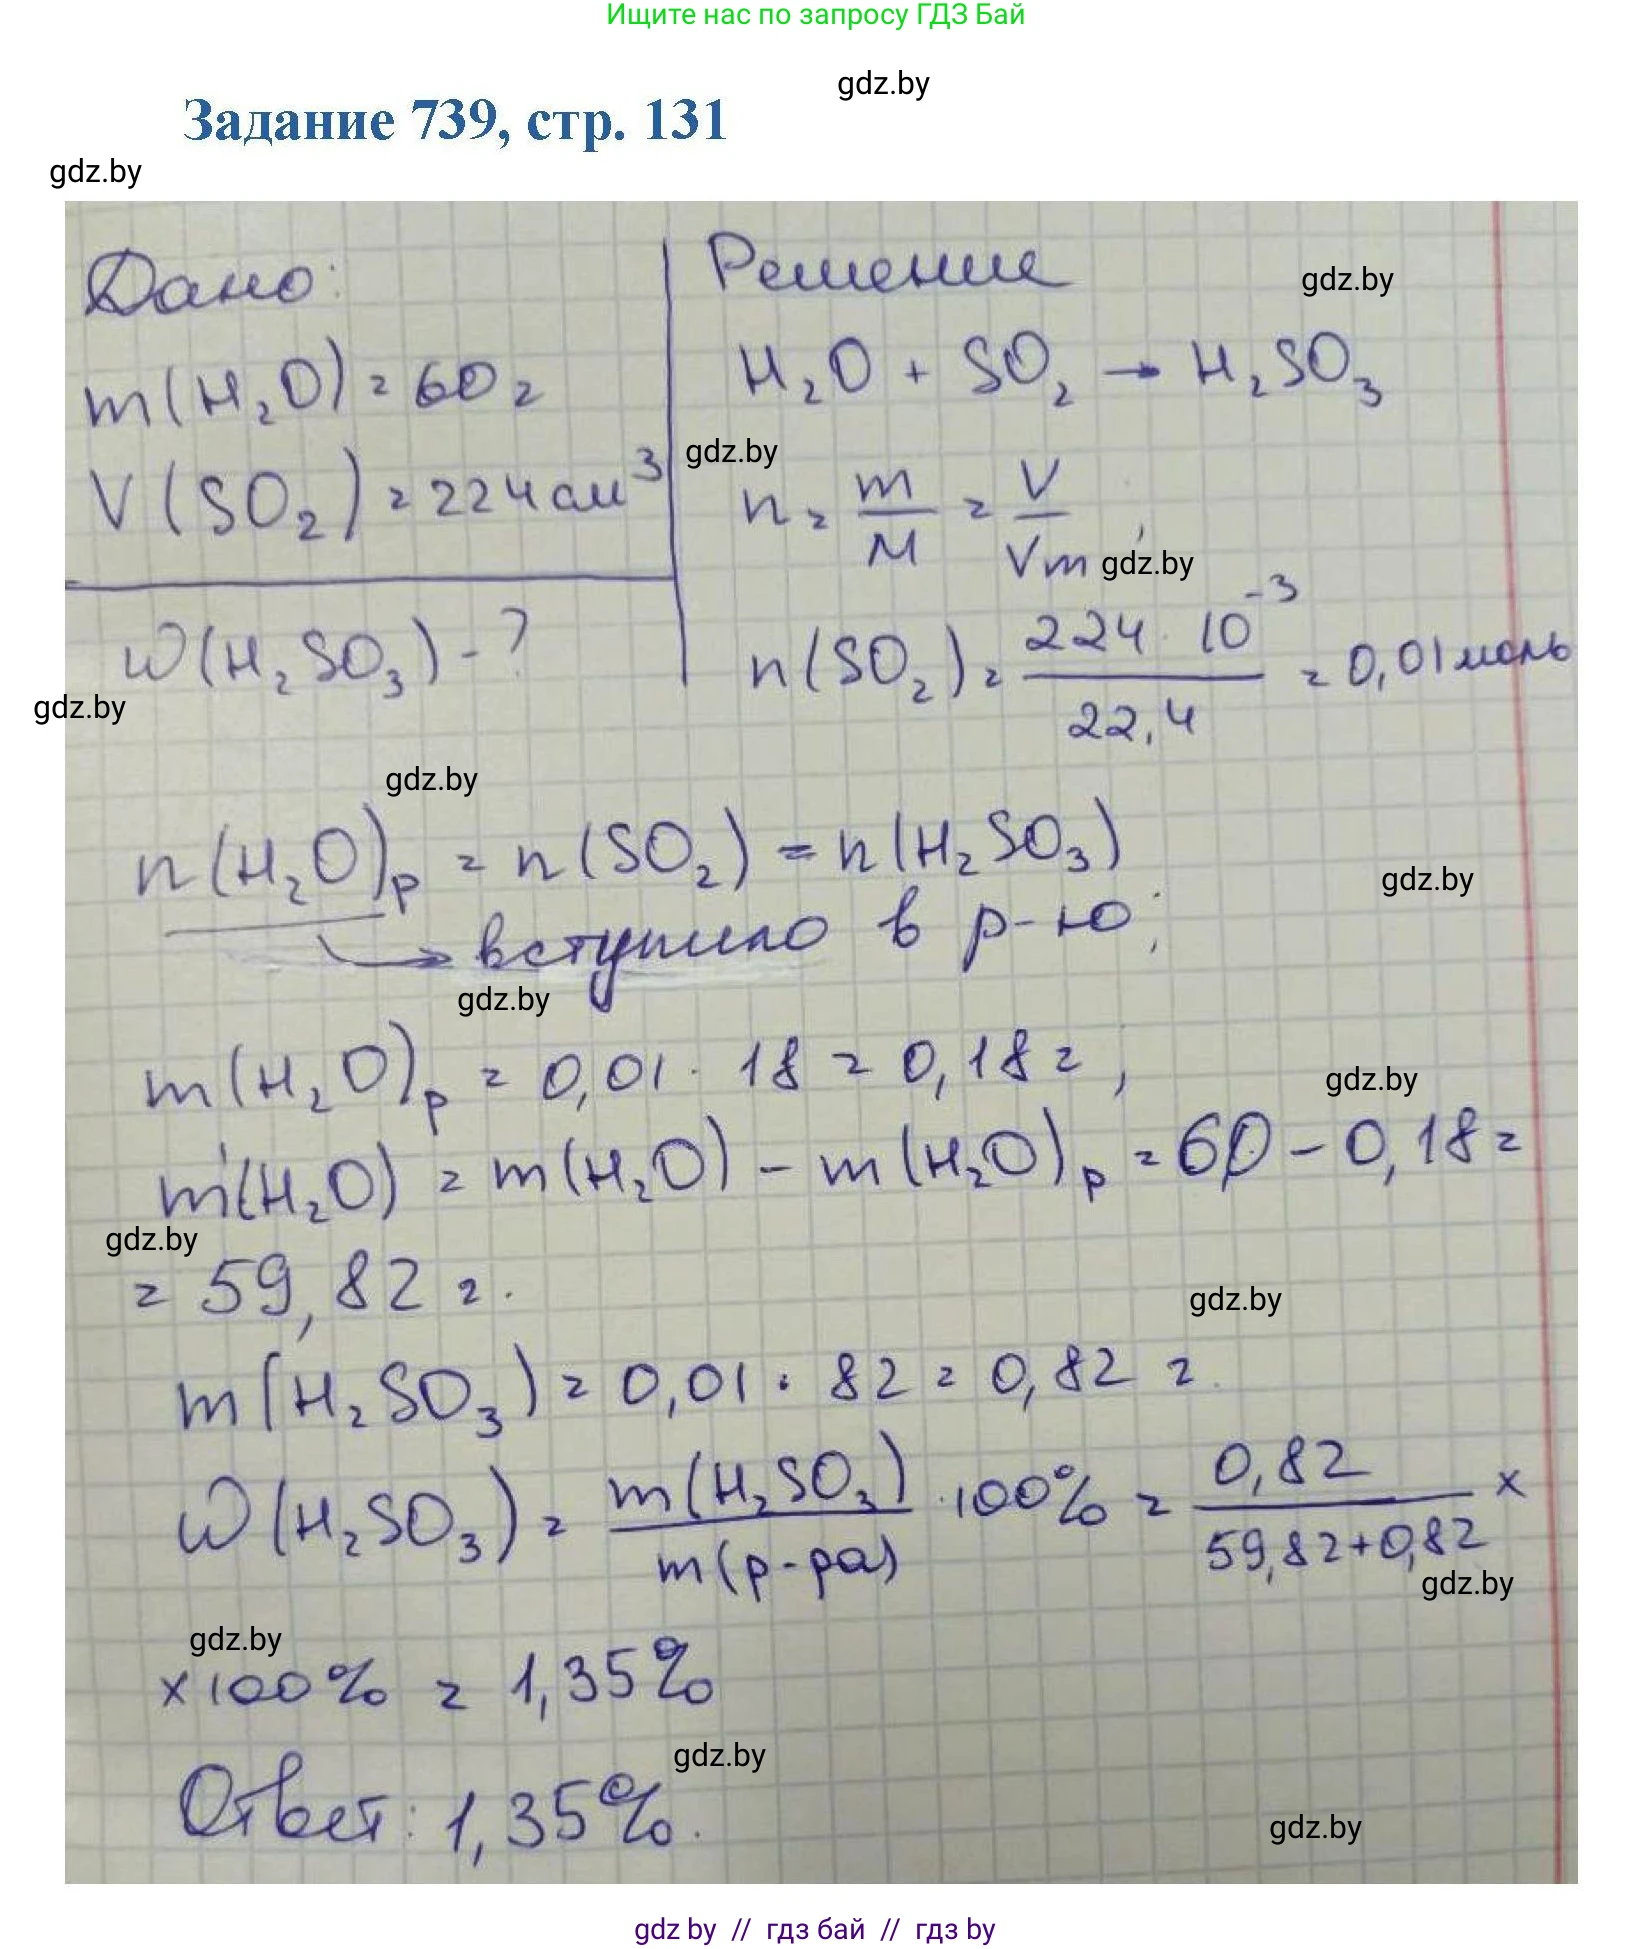 Ищите нас по запросу ГДЗ Бай
gdz.by
Задание 739, стр. 131
gdz.by
Дано:
m(H₂O) = 60 г
V(SO₂) = 224 см³
w(H₂SO₃) - ?
Решение
gdz.by
H₂O + SO₂ → H₂SO₃
gdz.by
n = m/M = V/Vm;
gdz.by
n(SO₂) = 224 · 10⁻³ / 22,4 = 0,01 моль
gdz.by
gdz.by
n(H₂O)р = n(SO₂) = n(H₂SO₃)
gdz.by
→ вступило в р-ю;
gdz.by
m(H₂O)р = 0,01 · 18 = 0,18 г;
gdz.by
m'(H₂O) = m(H₂O) - m(H₂O)р = 60 - 0,18 =
gdz.by
= 59,82 г.
gdz.by
m(H₂SO₃) = 0,01 · 82 = 0,82 г.
w(H₂SO₃) = m(H₂SO₃)/m(р-ра) · 100% = 0,82/59,82+0,82 ×
gdz.by
gdz.by
×100% = 1,35%
gdz.by
Ответ: 1,35%.
gdz.by
gdz by // гдз бай // гдз by